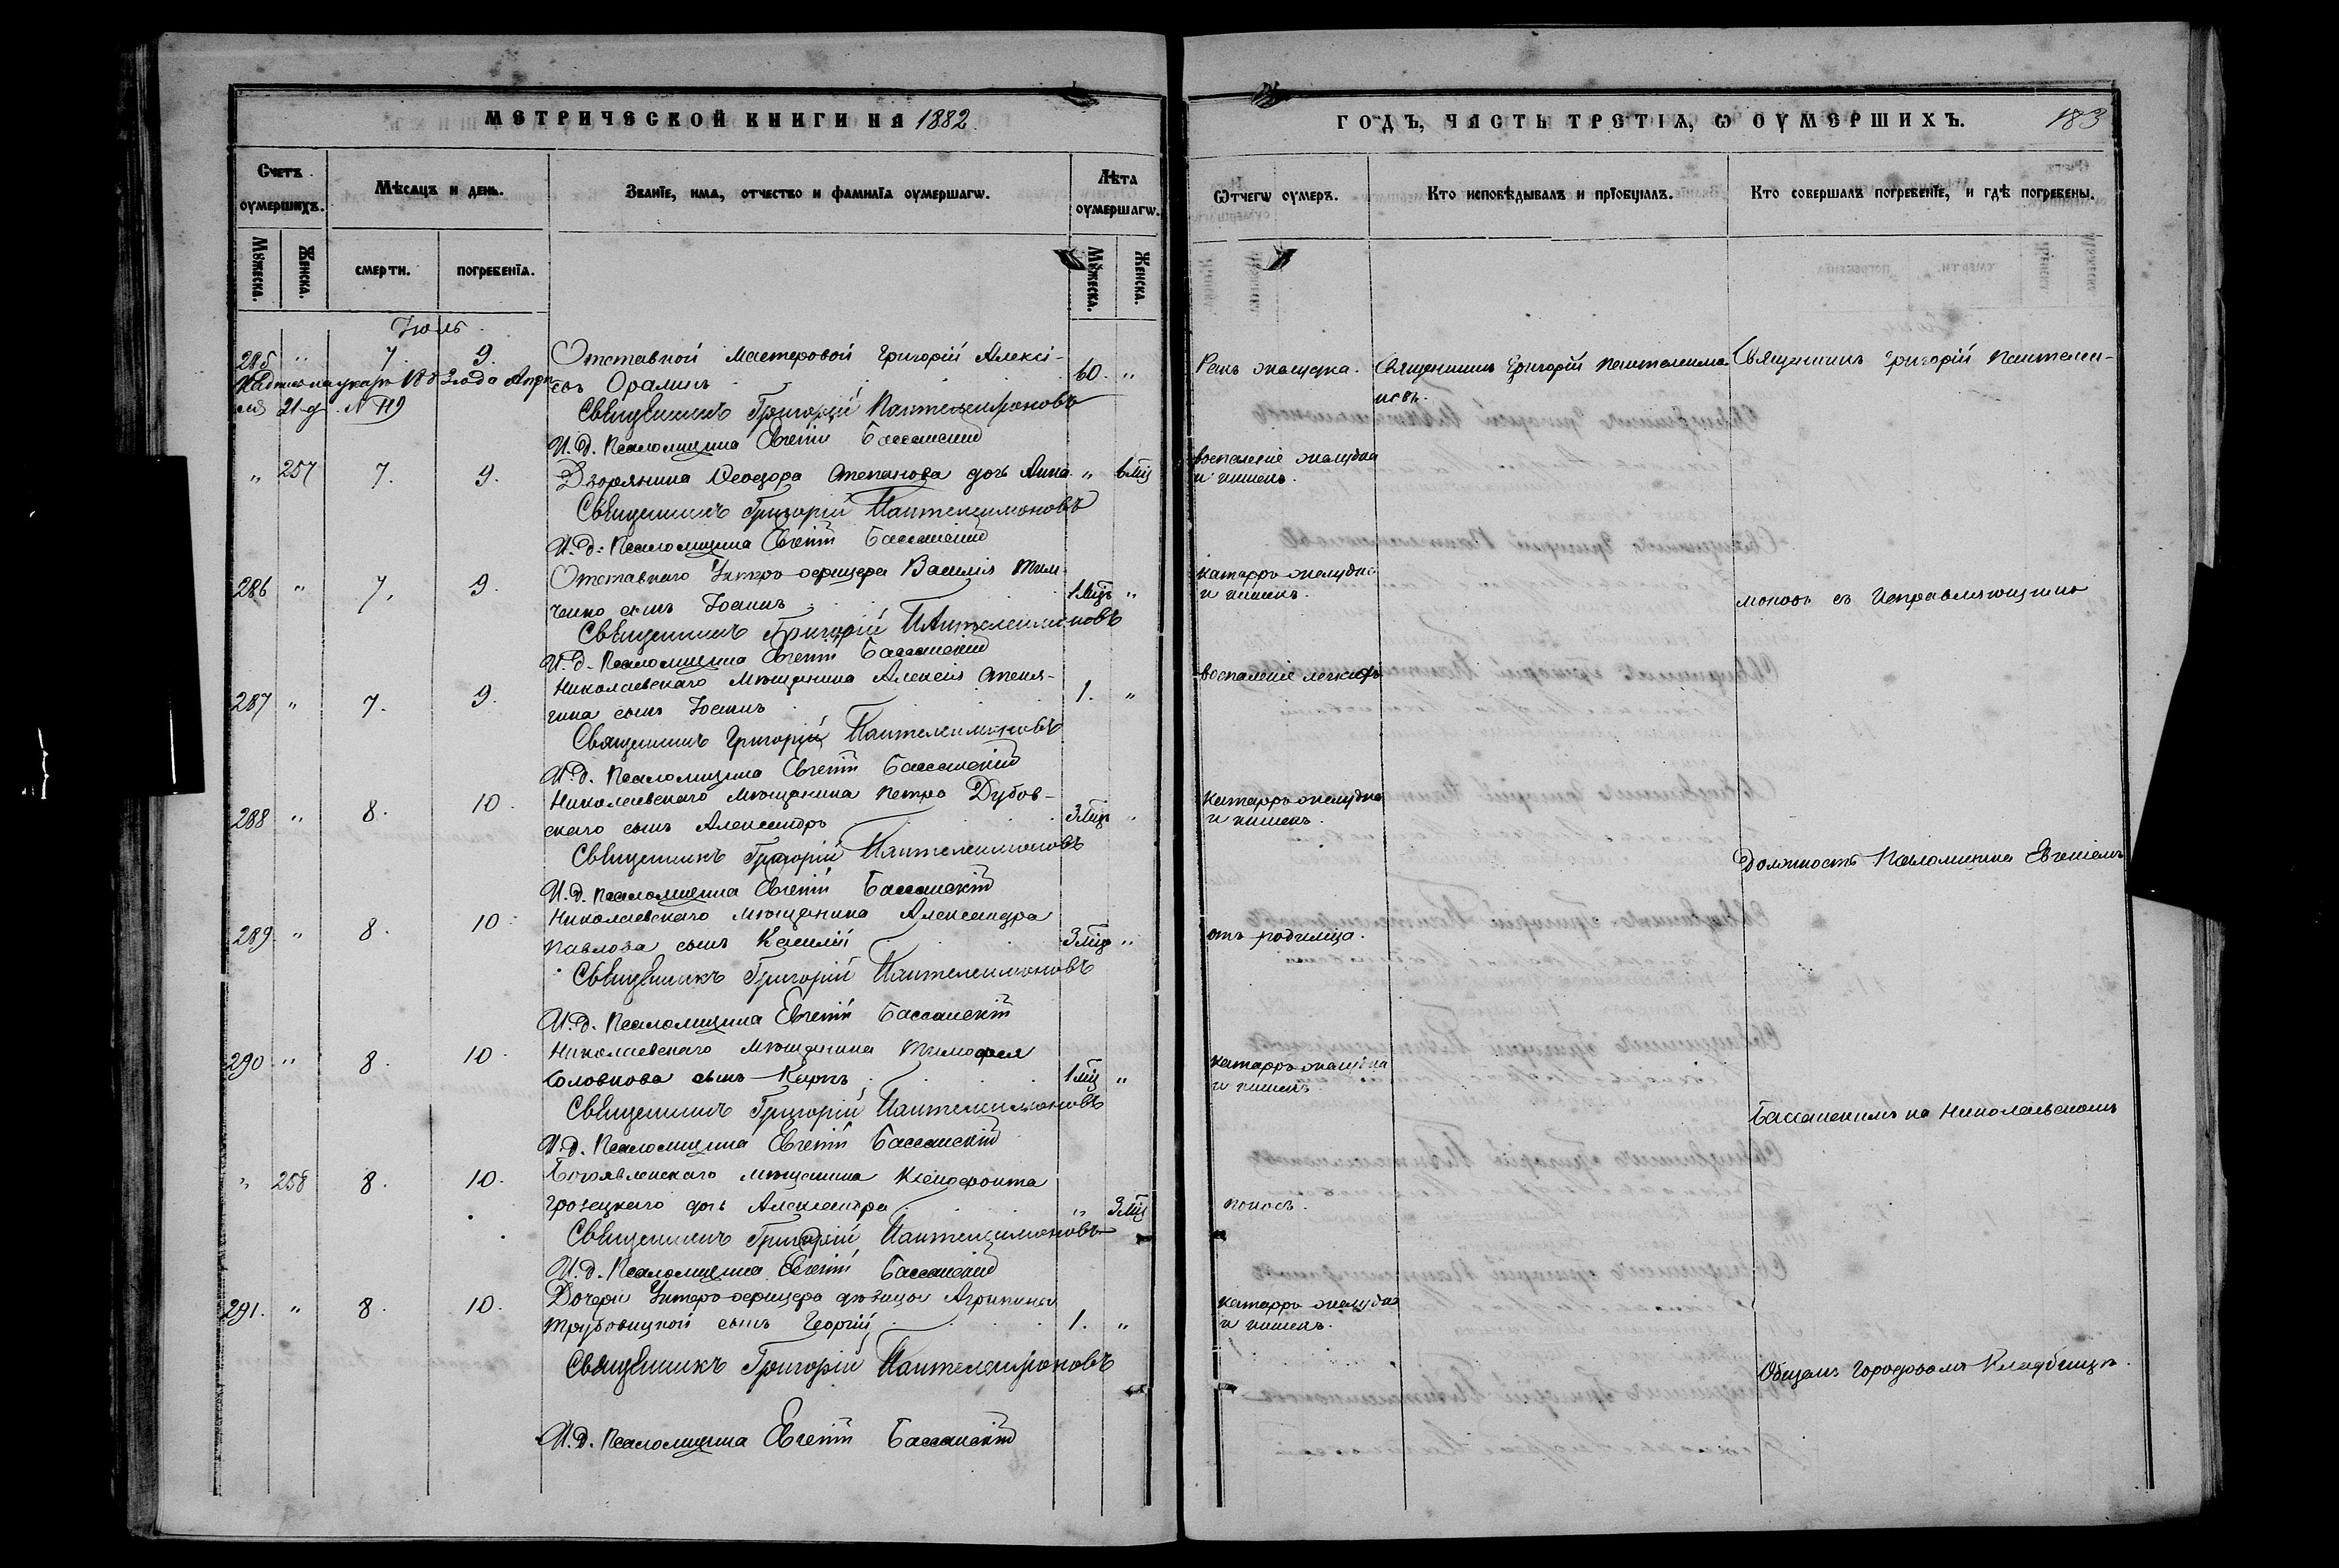 МЕТРИЧЕСКОЙ КНИГИ НА 1882
ГОДЪ, ЧАСТЬ ТРЕТІЯ, Ѡ ОУМЕРШИХЪ.
183
Счетъ оумершихъ.
Мѣсяцъ и день.
Званїе, имя, отчество и фамилїя оумершагѡ.
Лѣта оумершагѡ.
Ѿ чегѡ оумеръ.
Кто исповѣдывалъ и прїобщалъ.
Кто совершалъ погребенїе, и гдѣ погребены.
Мꙋжеска.
Женска.
смерти.
погребенїя.
Мꙋжеска.
Женска.
Іюль.
285 " 7. 9. Отставной мастеровой Григорій Алексі-
евъ Оралинъ 60. "
Ракъ желудка. Священникъ Григорій Пантелеимо-
новъ.
Священникъ Григорій Пантелеи-
21 д. № 119
Священникъ Григорій Пантелеимоновъ
И. д. Псаломщика Евгеній Бассанскій
" 257 7. 9. Дворянина Ѳеодора Степанова дочь Анна " 6 мц
воспаленіе желудка
и кишекъ.
Священникъ Григорій Пантелеимоновъ
И. д. Псаломщика Евгеній Бассанскій
286 " 7. 9. Отставнаго Унтеръ-офицера Василія Тим-
ченко сынъ Іоаннъ 1 мцъ "
катарръ желудка
и кишекъ.
моновъ съ Исправляющимъ
Священникъ Григорій Пантелеимоновъ
И. д. Псаломщика Евгеній Бассанскій
287 " 7. 9. Николаевскаго мѣщанина Алексія
сынъ Іоаннъ 1. "
воспаленіе легкихъ
Священникъ Григорій Пантелеимоновъ
И. д. Псаломщика Евгеній Бассанскій
288 " 8. 10. Николаевскаго мѣщанина Петра Дубов-
скаго сынъ Александръ 3 мцъ "
катарръ желудка
и кишекъ.
Священникъ Григорій Пантелеимоновъ
должность Псаломщика Евгеніемъ
И. д. Псаломщика Евгеній Бассанскій
289 " 8. 10. Николаевскаго мѣщанина Александра
Павлова сынъ Василій 3 мцъ "
отъ родимца.
Священникъ Григорій Пантелеимоновъ
И. д. Псаломщика Евгеній Бассанскій
290 " 8. 10. Николаевскаго мѣщанина Тимофея
Головкова сынъ Карпъ 1 мц "
катарръ желудка
и кишекъ
Священникъ Григорій Пантелеимоновъ
Бассанскимъ на Николаевскомъ
И. д. Псаломщика Евгеній Бассанскій
" 258 8. 10. Богоявленскаго мѣщанина Ксенофонта
Грозецкаго дочь Александра " 3 мц
поносъ.
Священникъ Григорій Пантелеимоновъ
И. д. Псаломщика Евгеній Бассанскій
291. " 8. 10. Дочери Унтеръ-офицера дѣвицы Агрипины
Трубовицкой сынъ Георгій 1. "
катарръ желудка
и кишекъ.
Священникъ Григорій Пантелеимоновъ
Общемъ городовомъ Кладбищѣ.
И. д. Псаломщика Евгеній Бассанскій